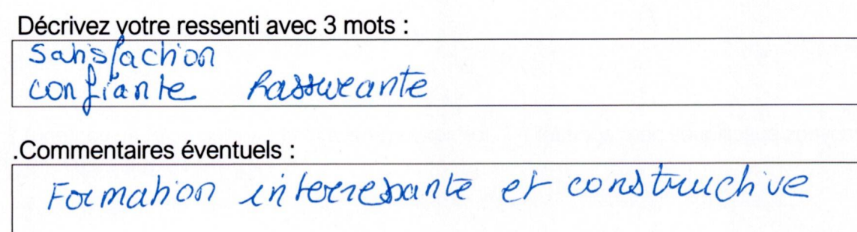 Décrivez votre ressenti avec 3 mots :
Satisfaction
confiante Rassurante
.Commentaires éventuels :
Formation interressante et constructive